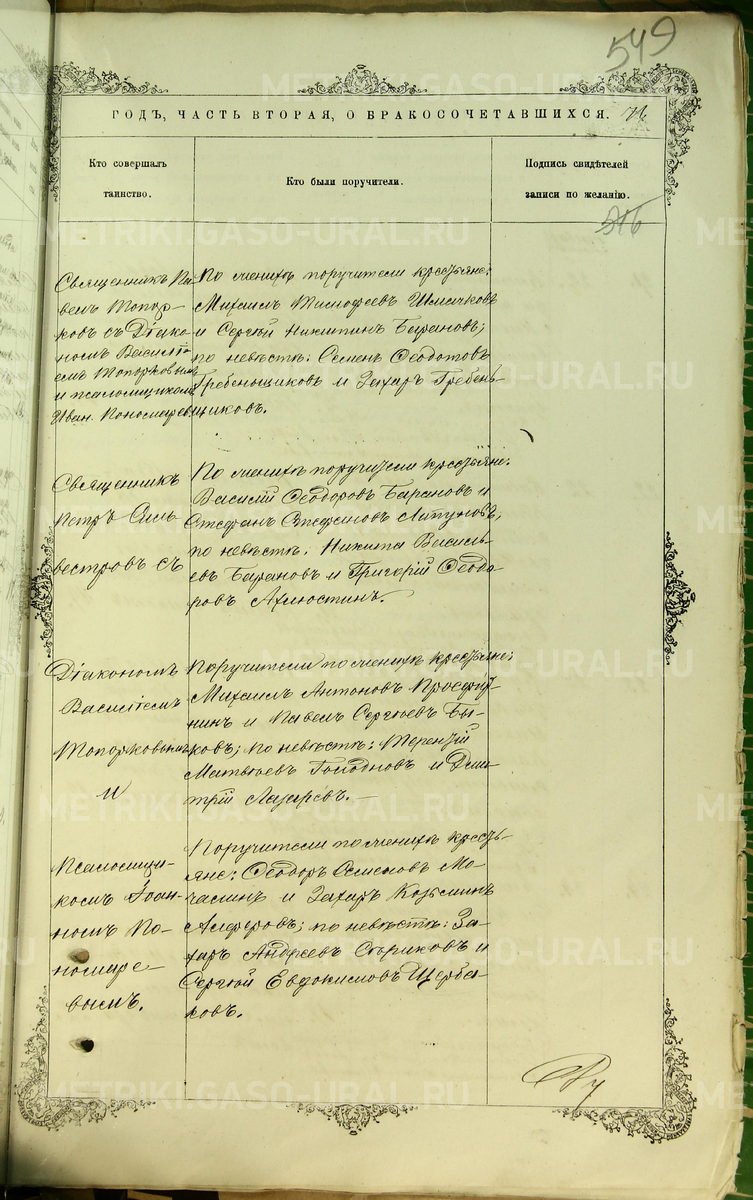 549
ГОДЪ, ЧАСТЬ ВТОРАЯ, О БРАКОСОЧЕТАВШИХСЯ.
Кто совершалъ
таинство.
Кто были поручители.
Подпись свидѣтелей
записи по желанію.
316
Священникъ Па-
велъ Топор-
ковъ съ Діако-
номъ Василі-
емъ Топорковымъ
и псаломщикомъ
Иван. Пономарев.
По женихѣ поручители крестьяне:
Михаилъ Тимофеевъ
и Сергѣй Никитинъ Барановъ;
по невѣстѣ: Семенъ Ѳеодотовъ
Гребенщиковъ и Захаръ Гребен-
щиковъ.
Священникъ
Петръ Силь-
вестровъ съ
По женихѣ поручители крестьяне:
Василій Ѳеодоровъ Барановъ и
Стефанъ Стефановъ Липуновъ;
по невѣстѣ: Никита Василь-
евъ Барановъ и Григорій Ѳеодо-
ровъ Ахлюстинъ.
Діакономъ
Василіемъ
Топорковымъ
и
Поручители по женихѣ крестьяне:
Михаилъ Антоновъ Просфир-
нинъ и Павелъ Сергѣевъ Бы-
ковъ; по невѣстѣ: Терентій
Матвѣевъ Голодновъ и Дми-
трій Лазаревъ.—
Псаломщи-
комъ Іоан-
номъ По-
номаре-
вымъ.
Поручители по женихѣ кресть-
яне: Ѳеодоръ Семеновъ Мо-
чалинъ и Захаръ Козьминъ
Алферовъ; по невѣстѣ: За-
харъ Андреевъ Стриковъ и
Сергѣй Евдокимовъ Щерба-
ковъ.
METRIKI.GASO-URAL.RU